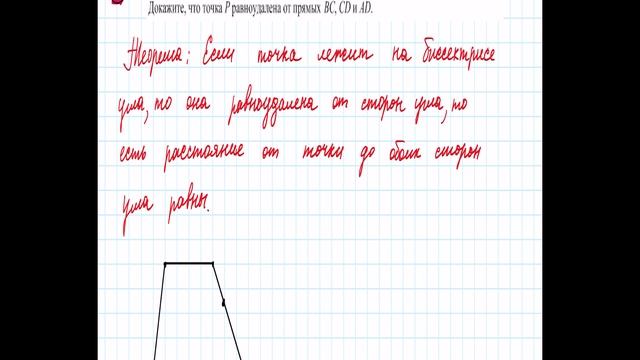 Докажите, что точка P равноудалена от прямых BC, CD и AD.
Теорема: Если точка лежит на биссектрисе
угла, то она равноудалена от сторон угла, то
есть расстояние от точки до обоих сторон
угла равны.